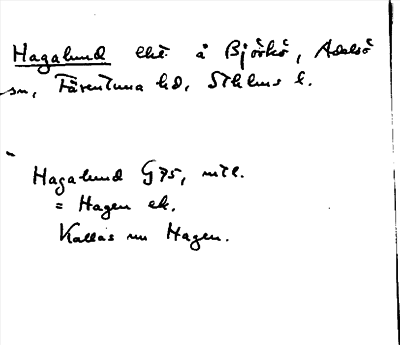 Hagalund lht. å Björkö, Adelsö
sn, Färentuna hd, Sthlms l.
Hagalund G75, mtl.
= Hagen ek.
Kallas nu Hagen.